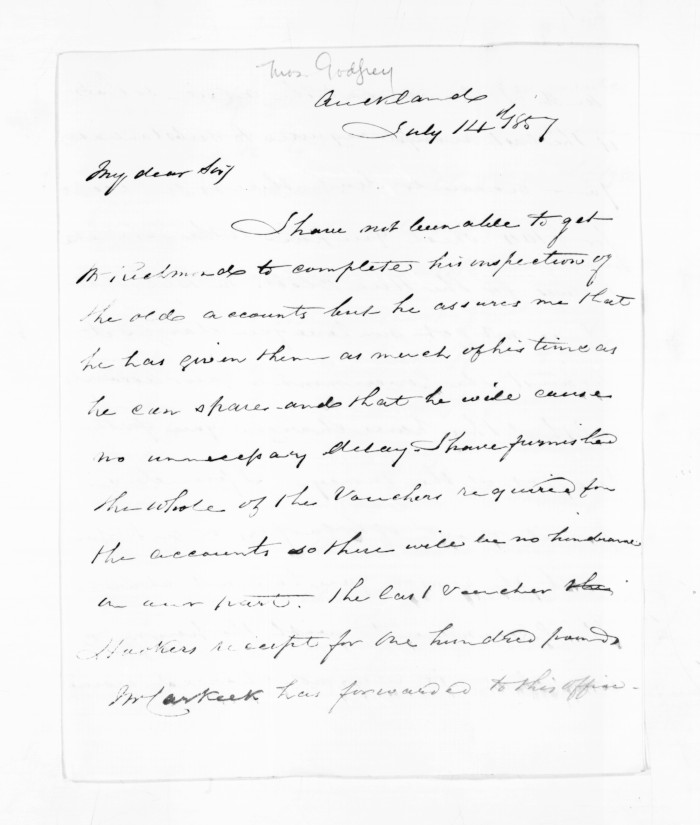 Thos. Godfrey
Auckland
July 14th 1857
My dear Sir
I have not been able to get
Mr Richmond to complete his inspection of
the old accounts but he assures me that
he has given them as much of his time as
he can spare and that he will cause
no unnecessary delay. I have furnished
the whole of the Vouchers required for
the accounts so there will be no hindrance
on our part. The last Voucher
receipt for one hundred pounds
Mr Carkeek has forwarded to this office.